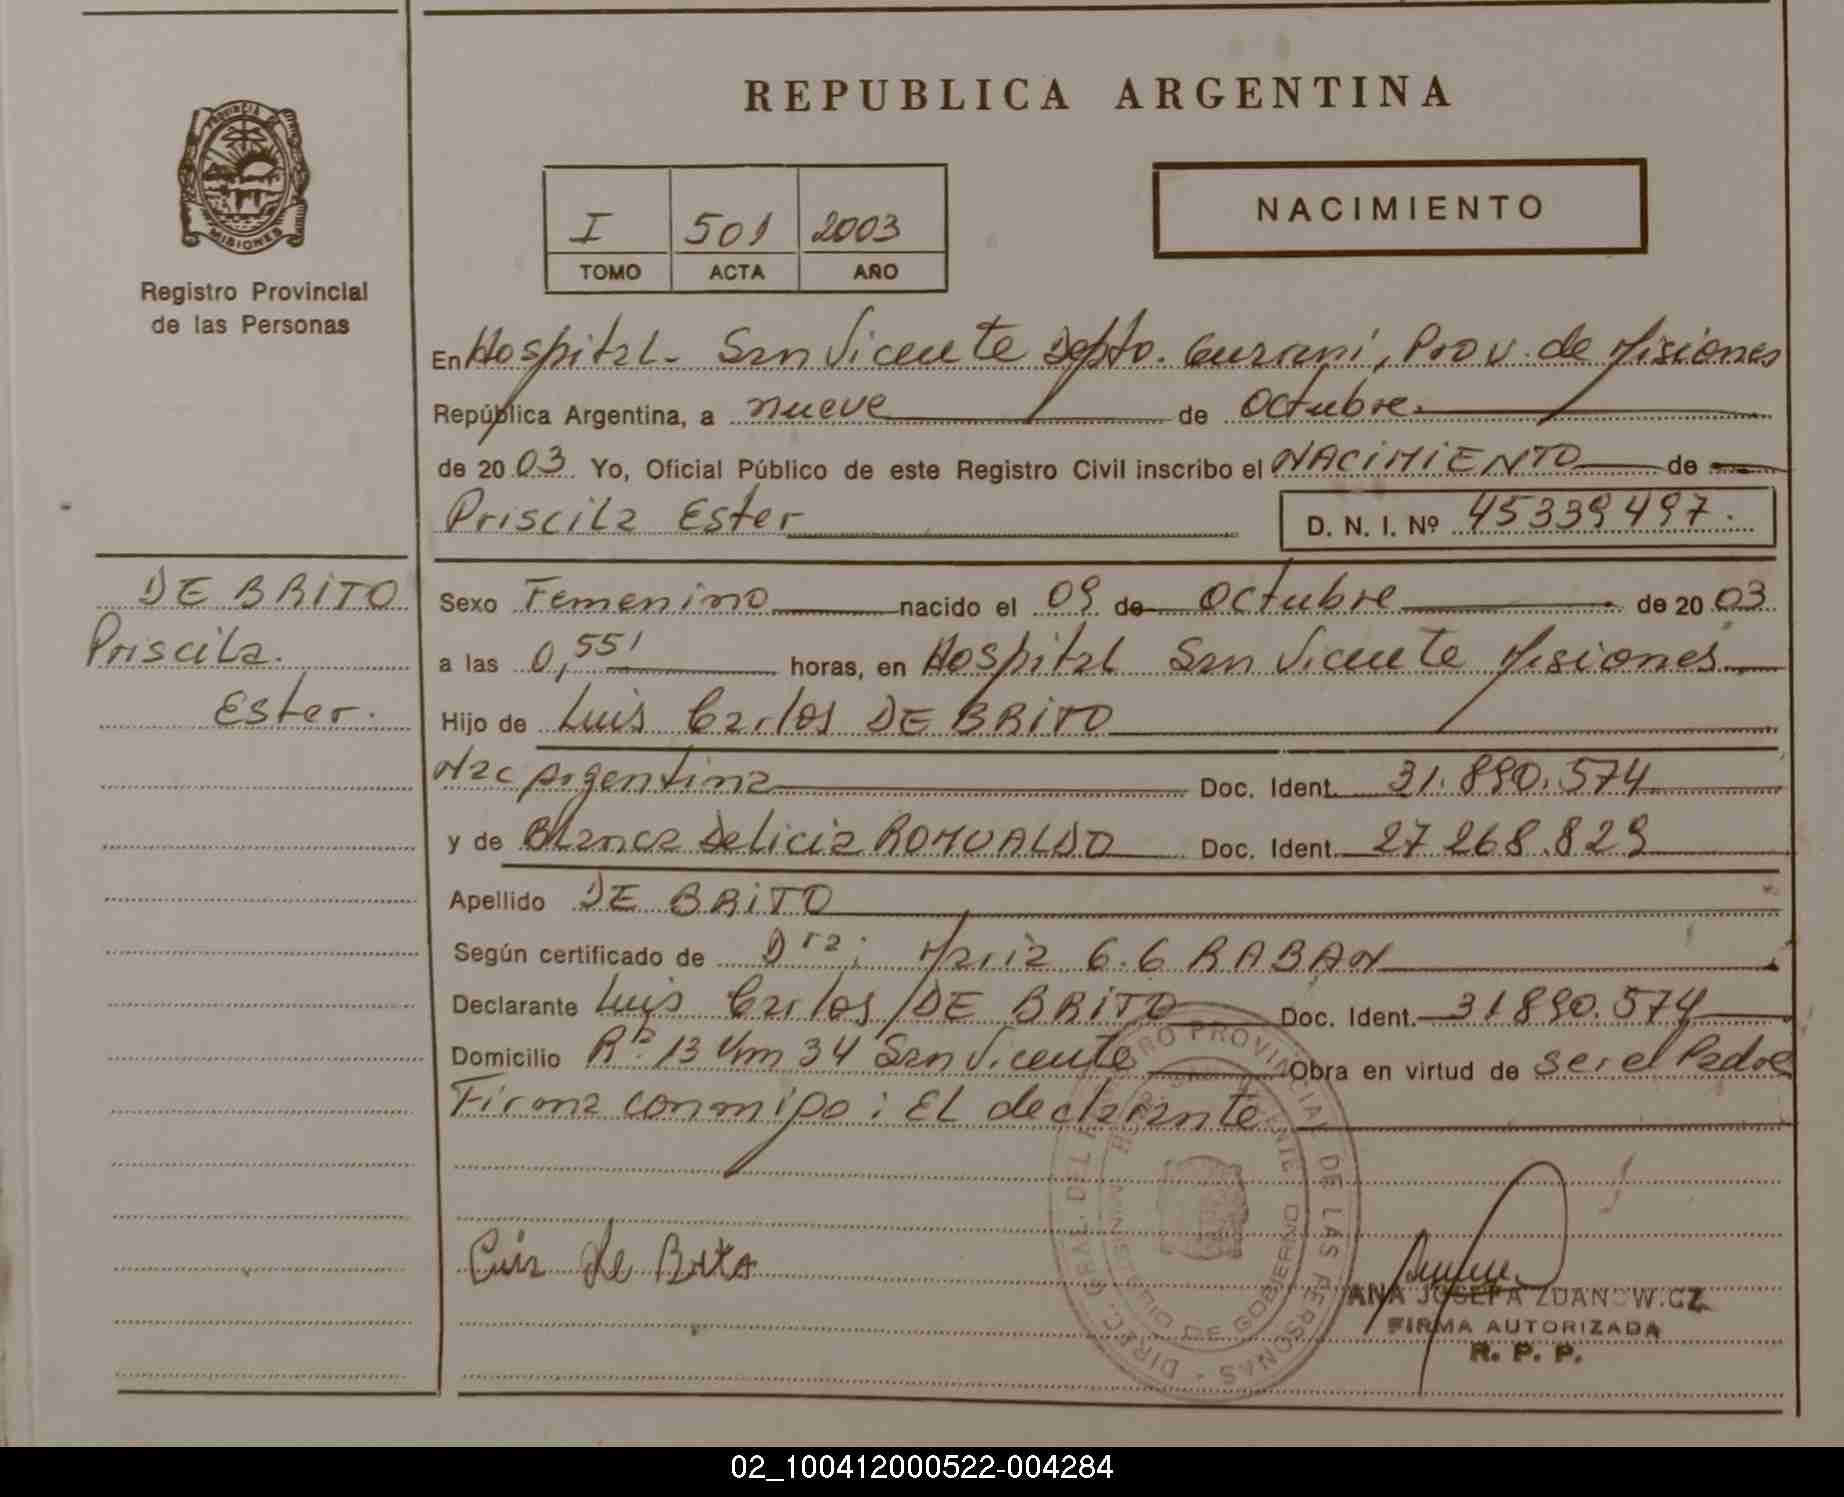 REPUBLICA ARGENTINA
PROVINCIA DE
MISIONES
Registro Provincial
de las Personas
I 501 2003
TOMO ACTA AÑO
NACIMIENTO
En Hospital - San Vicente Depto. Guaraní, Prov. de Misiones
República Argentina, a nueve de Octubre.
de 2003 Yo, Oficial Público de este Registro Civil inscribo el NACIMIENTO de
Priscila Ester D. N. I. Nº 45339497.
DE BRITO
Priscila.
Ester.
Sexo Femenino nacido el 09 de Octubre de 2003
a las 0,55' horas, en Hospital San Vicente Misiones
Hijo de Luis Carlos DE BRITO
Nac Argentina Doc. Ident. 31.890.574
y de Blanca Delicia ROMUALDO Doc. Ident. 27 268.829
Apellido DE BRITO
Según certificado de Dra: Maria G.G RABAN
Declarante Luis Carlos DE BRITO Doc. Ident. 31890.574
Domicilio Rta. 13 Km 34 San Vicente Obra en virtud de ser el Padre
Firma conmigo: EL declarante
Luis de Brito
DIREC. GRAL. DEL REGISTRO PROVINCIAL DE LAS PERSONAS
MINISTERIO DE GOBIERNO
ANA JOSEFA ZDANOWICZ
FIRMA AUTORIZADA
R. P. P.
02_100412000522-004284